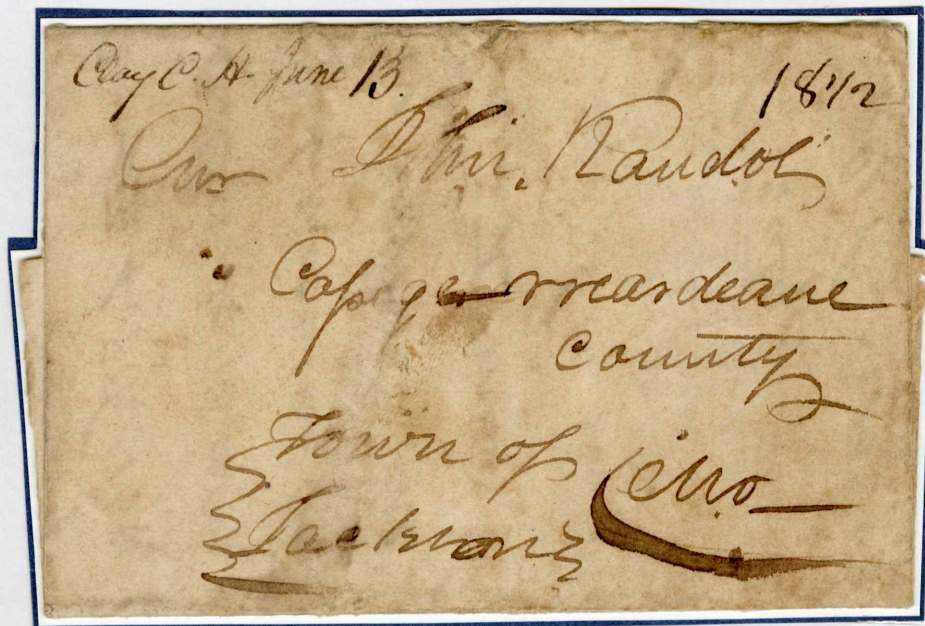 Clay C. H. June 13.
18 1/2
John. Randol
Cape ger rreardeaue
County
Town of Mo
Jackson